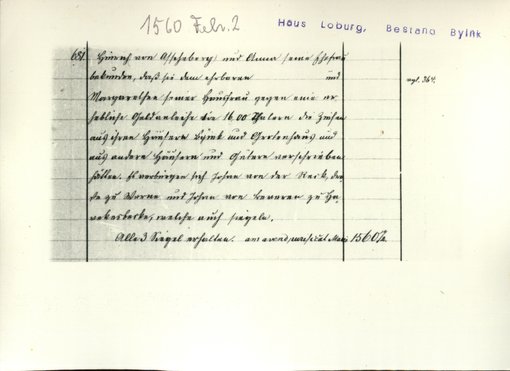 1560 Febr. 2
Haus Loburg, Bestand Byink
651. Hinrich von Asscheberg und Anna seine Ehefrau
bekunden, daß sie dem ehrbaren und
Margarethe seiner Hausfrau gegen eine er-
hebliche Geldanleihe von 1600 Thalern die Zinsen
aus ihren Häusern Byink und Gertenhaus und
aus andern Häusern und Gütern verschrieben
hätten. Es verbürgen sich Johan von der Reck, Dro-
ste zu Werne und Johan von Beveren zu Ha-
vekesbecke, welche auch siegeln.
Alle 3 Siegel erhalten. am avend purificat. Marie 1560
vgl. 364.